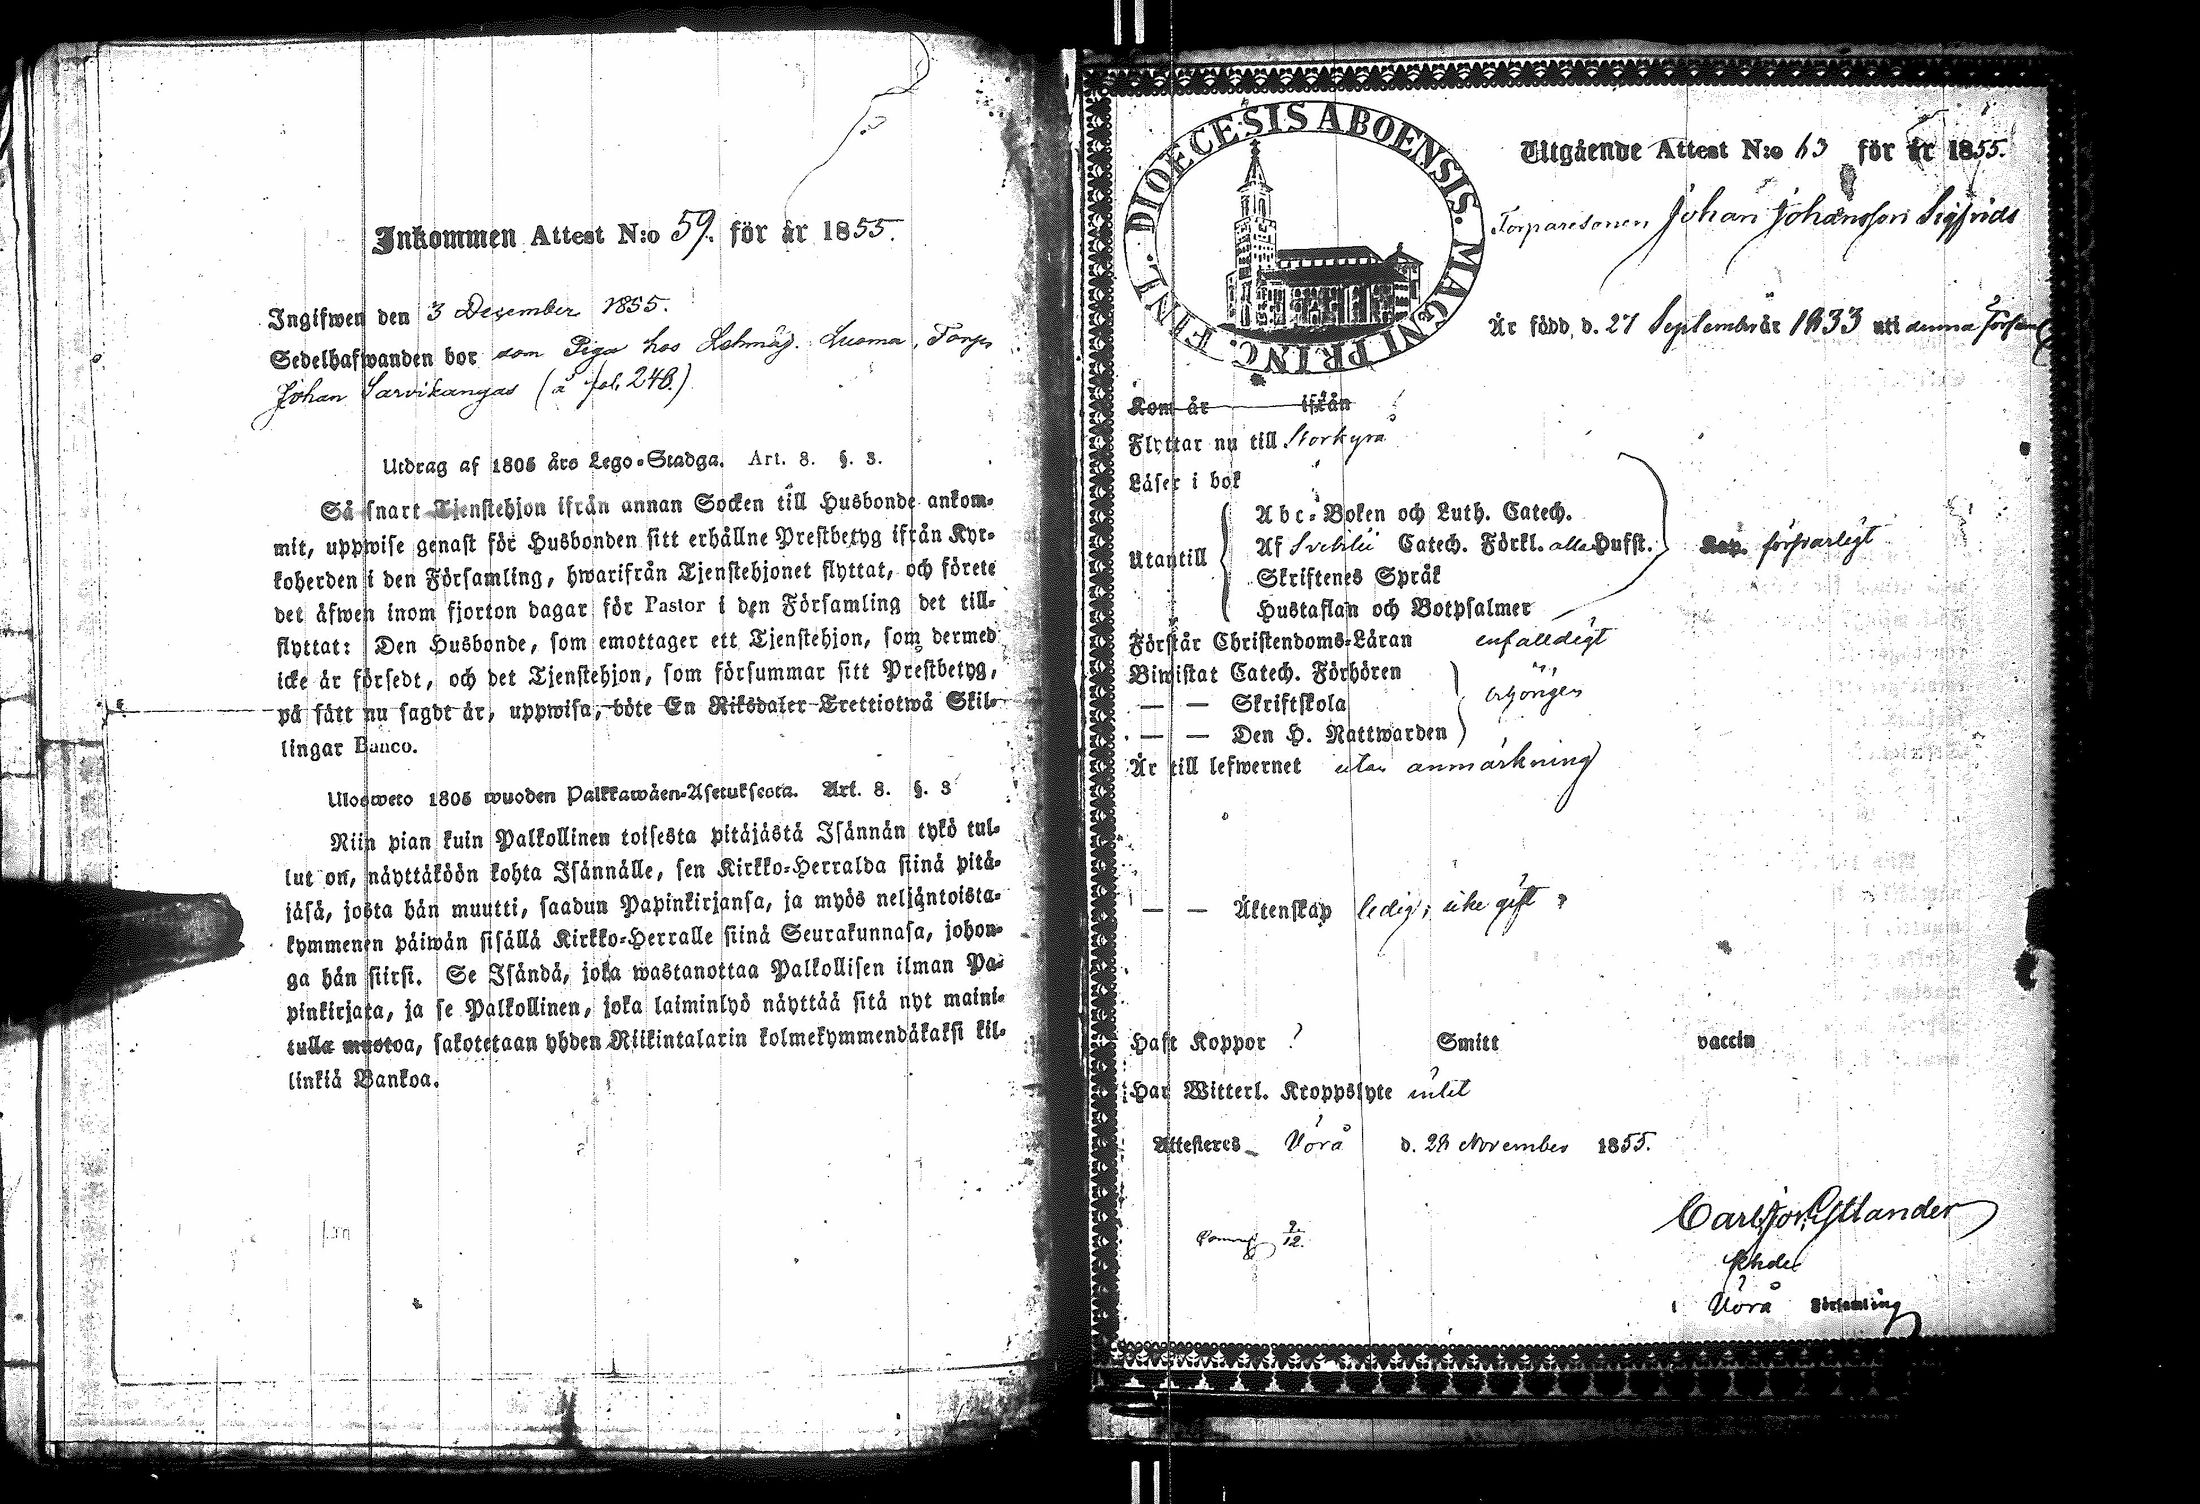 Inkommen Attest N:o 59. för år 1855.
Ingifwen den 3 December 1855.
Sedelhafwanden bor som Piga hos Luoma, Torp.
Johan Sarvikangas (å fol. 248.)
Utdrag af 1805 års Lego-Stadga. Art. 8. §. 3.
Så snart Tjenstehjon ifrån annan Socken till Husbonde ankom-
mit, uppwise genast för Husbonden sitt erhållne Prestbetyg ifrån Kyr-
koherden i den Församling, hwarifrån Tjenstehjonet flyttat, och förete
det äfwen inom fjorton dagar för Pastor i den Församling det till-
flyttat: Den Husbonde, som emottager ett Tjenstehjon, som dermed
icke är försedt, och det Tjenstehjon, som försummar sitt Prestbetyg,
på sätt nu sagdt är, uppwisa, böte En Riksdaler Trettiotwå Skil-
lingar Banco.
Ulosweto 1805 wuoden Palkkawäen-Asetuksesta. Art. 8. §. 3
Niin pian kuin Palkollinen toisesta pitäjästä Isännän tykö tul-
lut on, näyttäköön kohta Isännälle, sen Kirkko-Herralda siinä pitä-
jäsä, josta hän muutti, saadun Papinkirjansa, ja myös neljäntoista-
kymmenen päiwän sisällä Kirkko-Herralle siinä Seurakunnasa, johon-
ga hän siirsi. Se Isändä, joka wastanottaa Palkollisen ilman Pa-
pinkirjata, ja se Palkollinen, joka laiminlyö näyttää sitä nyt maini-
tulla mustoa, sakotetaan yhden Riikintalarin kolmekymmendäkaksi kil-
linkiä Bankoa.
DIOECESIS ABOENSIS. MAGNI PRINC. FINL.
Utgående Attest N:o 63 för år 1855.
Torparesonen Johan Johansson Sigfrids
Är född, d. 27 September år 1833 uti denna Församl
Kom år ifrån
Flyttar nu till Storkyrå
Läser i bok
Utantill
Abc-Boken och Luth. Catech.
Af Svebilii Catech. Förkl. alla Hufst.
Skriftenes Språk
Hustaflan och Botpsalmer
försvarligt
Förstår Christendoms-Läran enfalldigt
Biwistat Catech. Förhören
— — Skriftskola
— — Den H. Nattwarden
Är till lefwernet utan anmärkning
— — Äktenskap ledig; icke gift
Haft Koppor ? Smitt vaccin
Har Witterl. Kroppslyte intet
Attesteras Vörå d. 28 November 1855.
Carl Joh. Estlander
i Vörå Församling